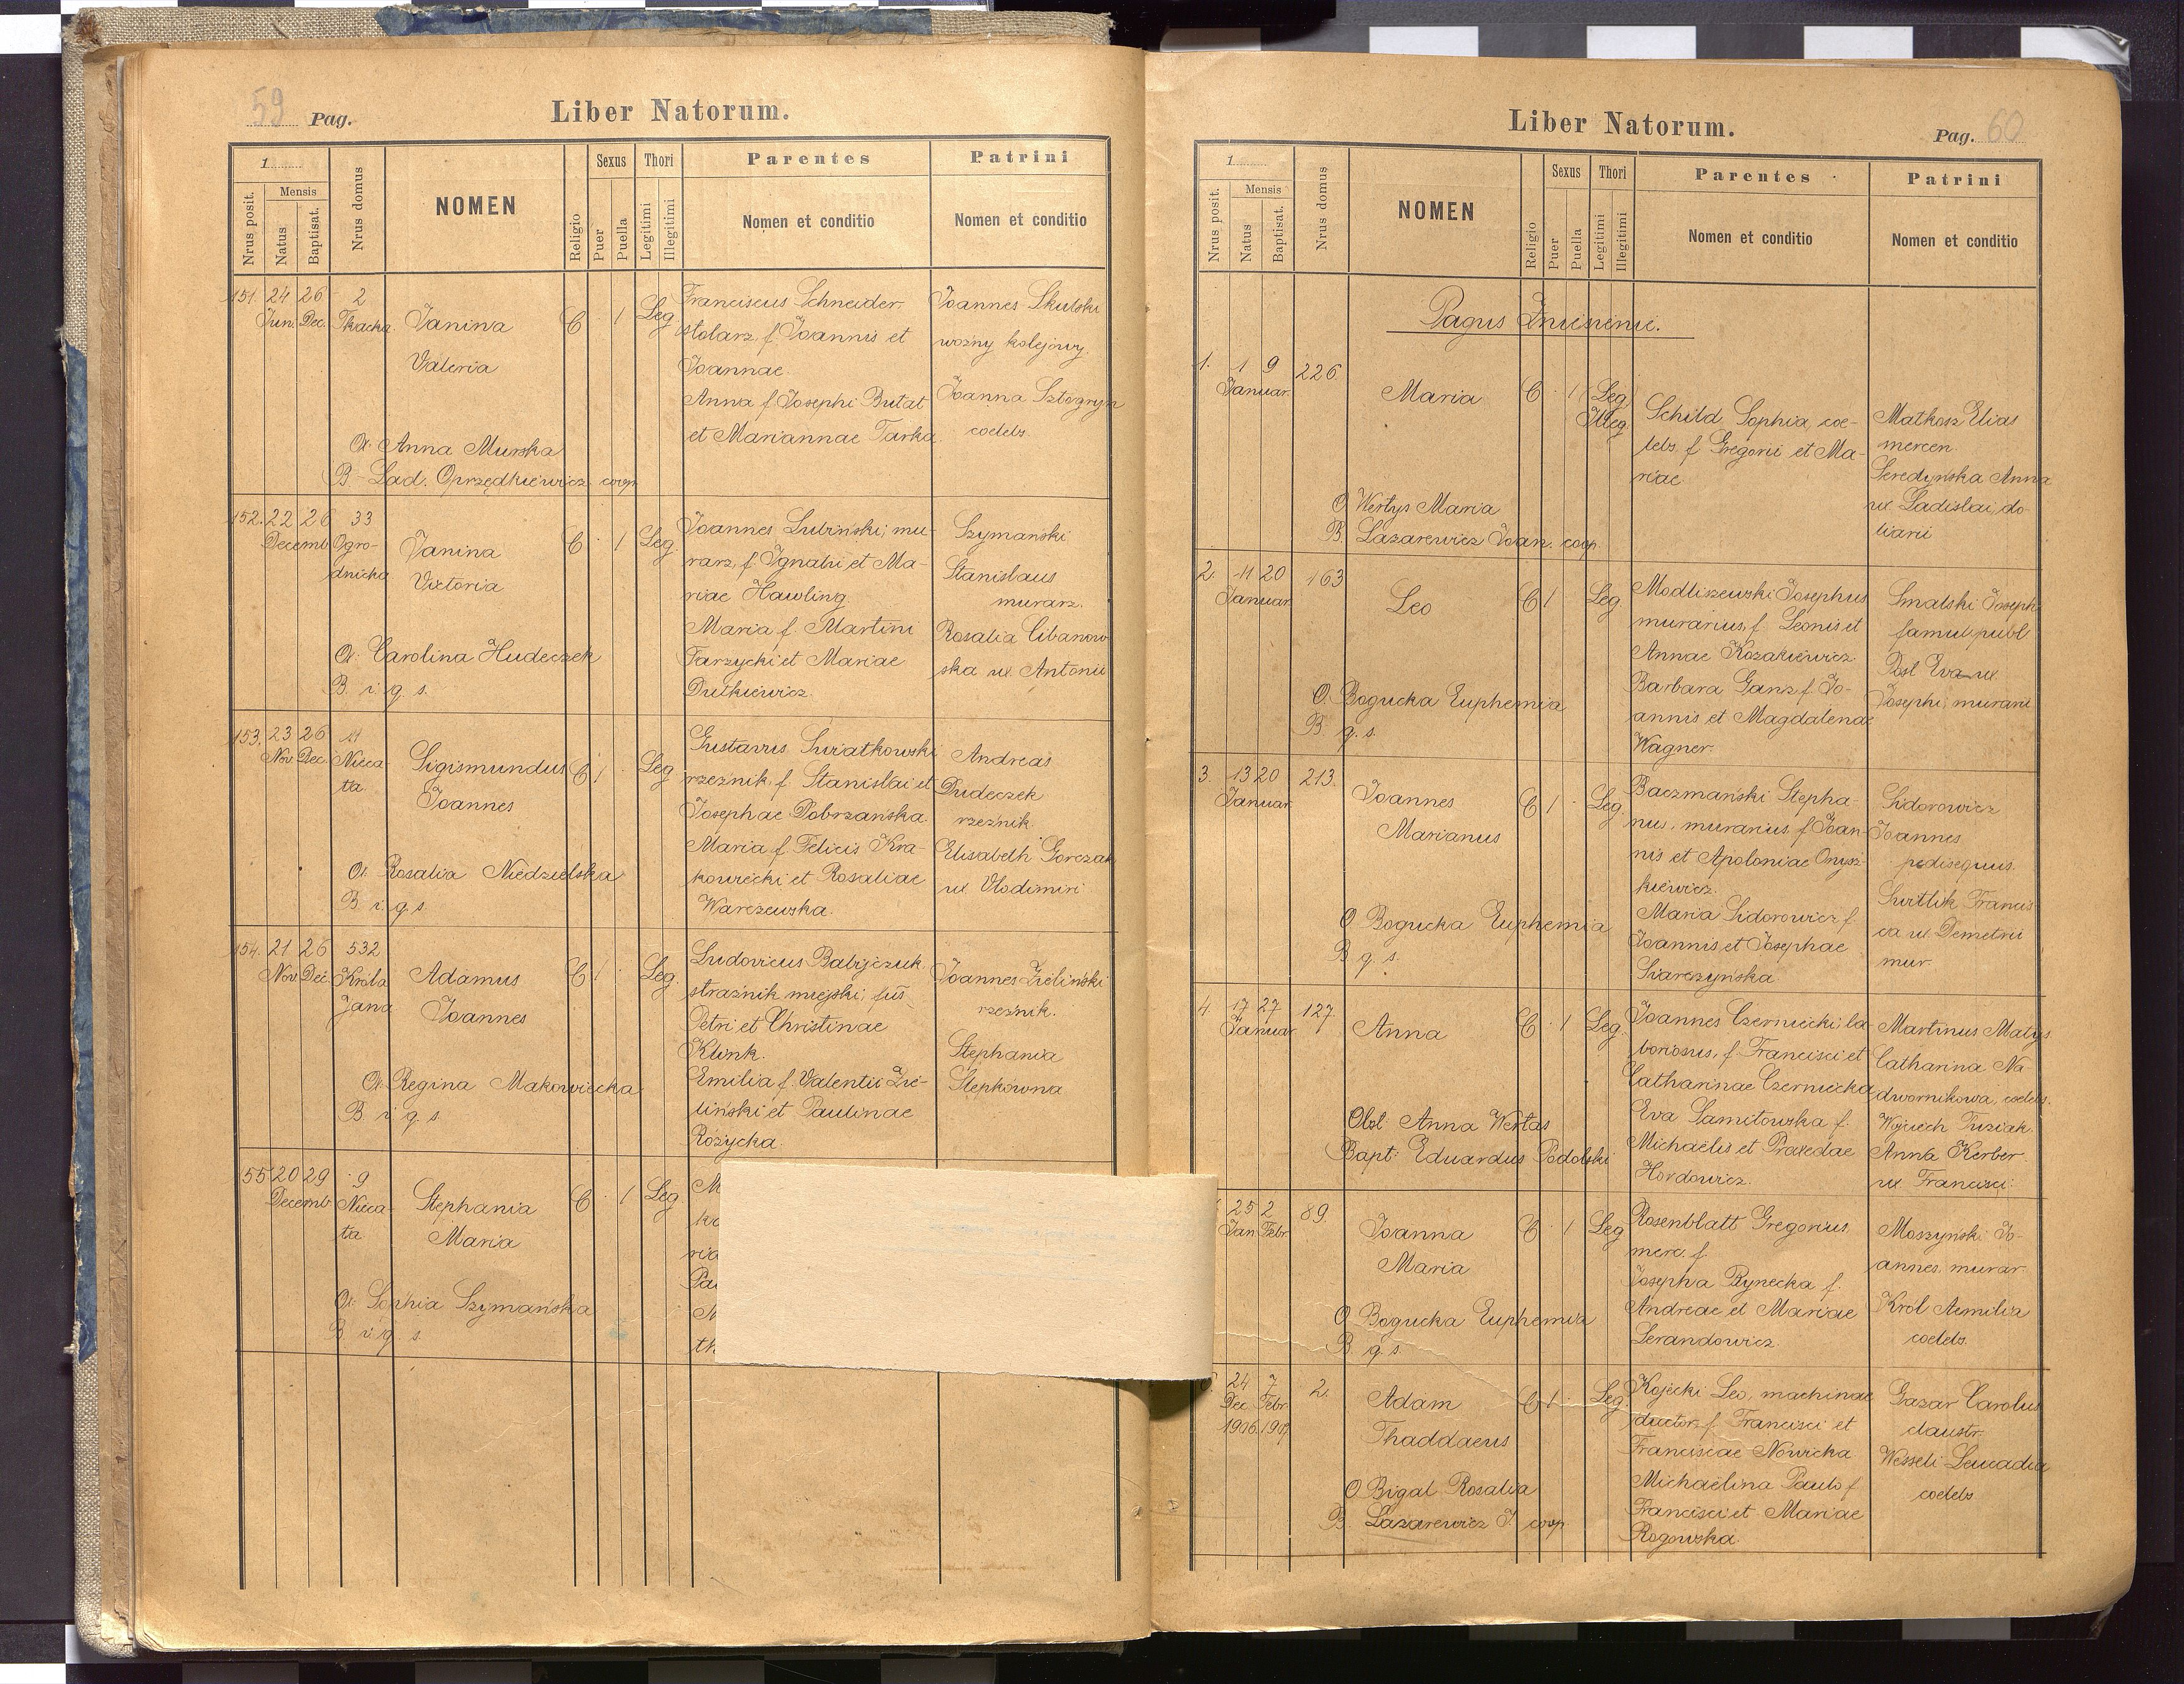 59 Pag.
Liber Natorum.
1
Nrus posit.
Mensis
Natus
Baptisat.
Nrus domus
NOMEN
Religio
Sexus
Puer
Puella
Thori
Legitimi
Illegitimi
Parentes
Nomen et conditio
Patrini
Nomen et conditio
151. 24 26 2
Jun. Dec. Tkacka.
Janina
Valeria
C 1 Leg.
O. Anna Murska
B. Lad. Oprzędkiewicz coop.
Franciscus Schneider
stolarz, f. Joannis et
Joannae.
Anna f. Josephi Butat
et Mariannae Tarka.
Joannes Skulski
woźny kolejowy.
Joanna Sztogryn
coelebs.
152. 22 26 33
Decemb. Ogro-
dnicka
Janina
Victoria
C 1 Leg.
O. Carolina Hudeczek
B. i. q. s.
Joannes Lubiński, mu-
rarz, f. Ignatii et Ma-
riae Hawling.
Maria f. Martini
Tarzycki et Mariae
Dutkiewicz.
Szymański
Stanislaus
murarz.
Rosalia Cibanow
ska ux. Antonii
153. 23 26 11
Nov. Dec. Nieca-
ta
Sigismundus
Joannes
C 1 Leg
O. Rosalia Niedzielska
B. i. q. s.
Gustavus Swiatkowski
rzeźnik, f. Stanislai et
Josephae Dobrzańska.
Maria f. Felicis Kra-
kowiecki et Rosaliae
Warezewska.
Andreas
Dudeczek
rzeźnik.
Elisabeth Gorczak
ux. Vlodimiri
154. 21 26 532
Nov. Dec. Króla
Jana
Adamus
Joannes
C 1 Leg.
O. Regina Makowiecka
B. i. q. s.
Ludovicus Babijczuk
strażnik miejski, fus
Petri et Christinae
Klink.
Emilia f. Valentii Zie-
liński et Paulinae
Różycka.
Joannes Zieliński
rzeźnik.
Stephania
Stepkowna
155 20 29 9
Decemb. Nieca-
ta
Stephania
Maria
C 1 Leg.
O. Sophia Szymańska
B. i. q. s.
Liber Natorum.
Pag. 60
1
Nrus posit.
Mensis
Natus
Baptisat.
Nrus domus
NOMEN
Religio
Sexus
Puer
Puella
Thori
Legitimi
Illegitimi
Parentes
Nomen et conditio
Patrini
Nomen et conditio
Pagus Zniesienie.
1. 1 9 226
Januar.
Maria
C 1 Leg
Illeg.
O. Wertys Maria
B. Lazarewicz Joan. coop.
Schild Sophia, coe-
lebs, f. Gregorii et Ma-
riae
Matkosz Elias
mercen.
Seredyńska Anna
ux. Ladislai, do-
liarii
2. 11 20 163
Januar.
Leo
C 1 Leg.
O. Bogucka Euphemia
B. q. s.
Modliszewski Josephus
murarius, f. Leonis et
Annae Kozakiewicz.
Barbara Ganz f. Jo-
annis et Magdalenae
Wagner.
Smalski Joseph
famul. publ.
Posl Eva ux.
Josephi, murarii
3. 13 20 213.
Januar.
Joannes
Marianus
C 1 Leg.
O. Bogucka Euphemia
B. q. s.
Baczmański Stepha-
nus, murarius, f. Joan-
nis et Apoloniae Onysz-
kiewicz.
Maria Sidorowicz f.
Joannis et Josephae
Siarczyńska.
Sidorowicz
Joannes
pedisequus.
Switlik Francis
ca ux. Demetrii
mur.
4. 17 27 127.
Januar.
Anna
C 1 Leg.
Obst. Anna Wertas
Bapt: Eduardus Podolski
Joannes Czerniecki, la-
boriosus, f. Francisci et
Catharinae Czerniecka,
Eva Samitowska f.
Michaëlis et Praxedae
Hordowicz.
Martinus Matys
Catharina Na-
dwornikowa, coelebs.
Wojciech Tuziak.
Anna Kerber
ux. Francisci.
25 2 89.
Jan. Febr.
Joanna
Maria
C 1 Leg
O. Bogucka Euphemia
B. q. s.
Rosenblatt Gregorius,
merc. f.
Josepha Rynecka f.
Andreae et Mariae
Lerandowicz.
Moszyński Jo-
annes, murar.
Król Aemilia
coelebs.
24 7 2.
Dec. Febr.
1906. 1907
Adam
Thaddaeus
C 1 Leg.
O. Bigal Rosalia
B. Lazarewicz J. coop
Kojecki Leo, machinae
ductor, f. Francisci et
Franciscae Nowicka
Michaëlina Paulo f.
Francisci et Mariae
Rogowska.
Gazar Carolus
claustr.
Wesseli Leucadia
coelebs